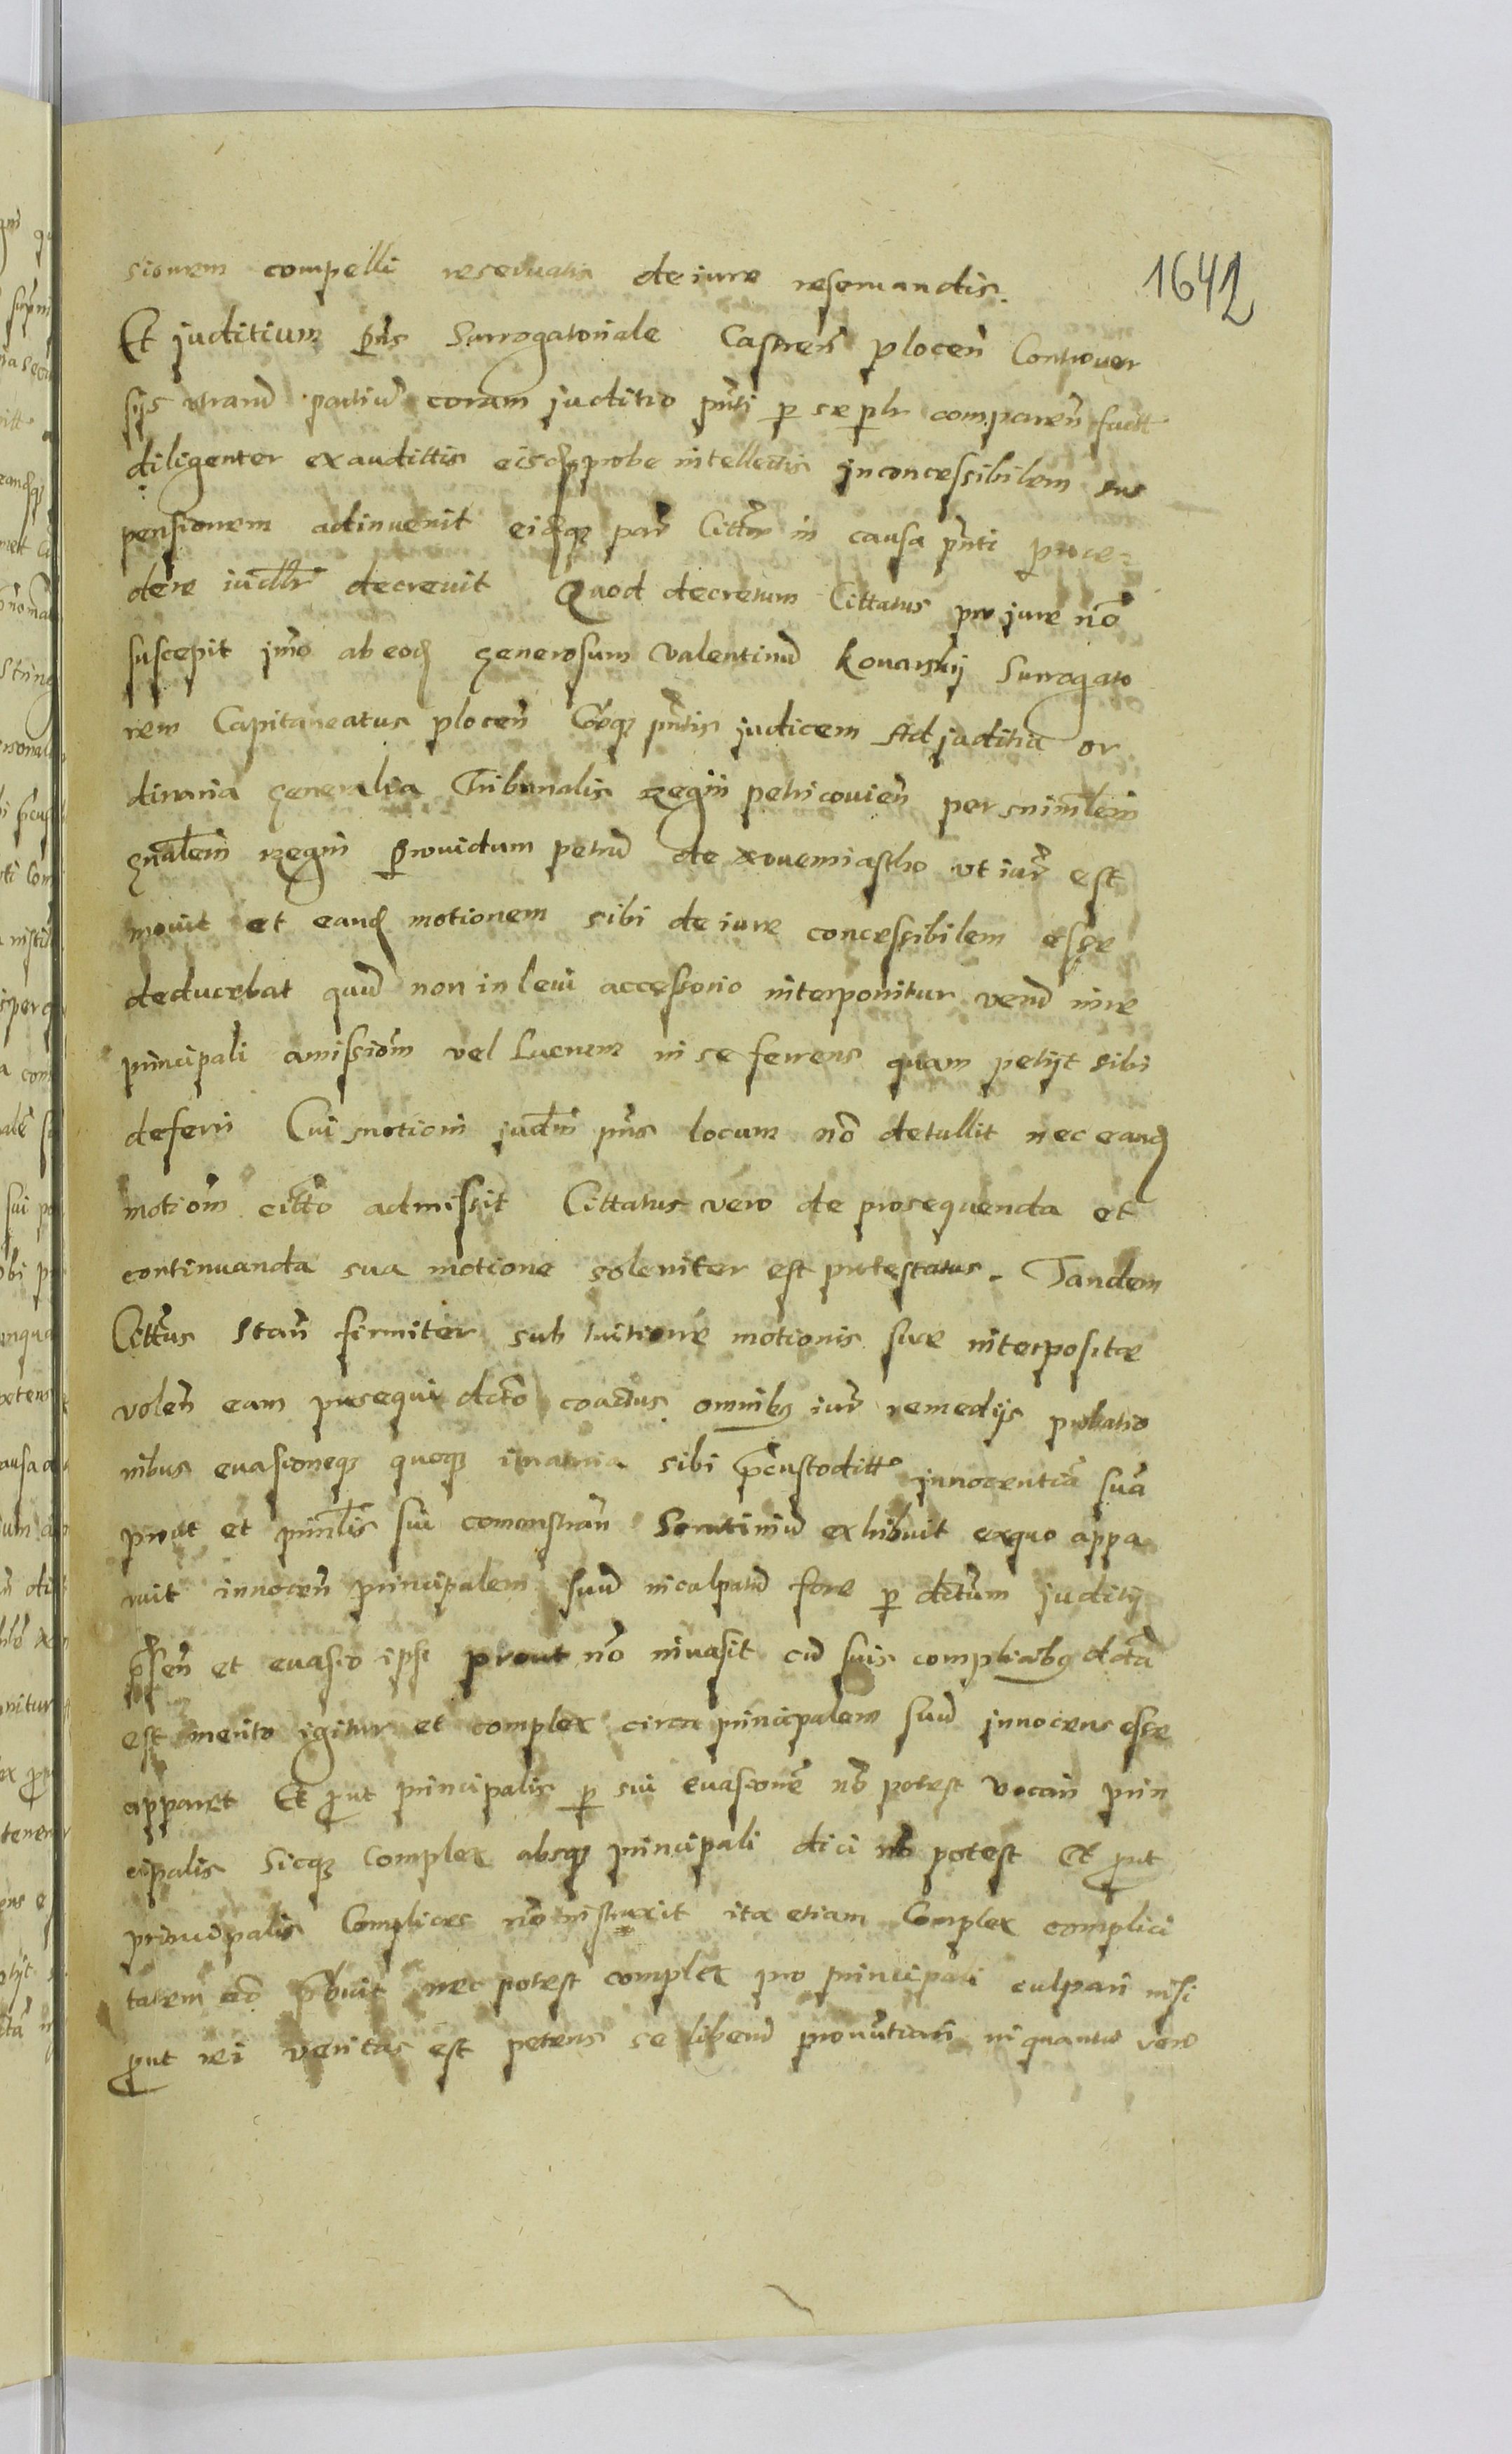 1642
sionem compelli reservatis de iure reservandis.
Et juditium pñs Surrogatoriale Castren̄ plocen̄ Controver
sijs utrarū partiū coram juditio pñti p se plr comparen̄ factt
diligenter exaudittis eisqȝ probe intellectis inconcessibilem sus
pensionem adinvenit eisqȝ par̄ Citt̄m in causa pñti proce=
dere iudllr̄ decrevit Quod decretum Cittatus pro jure nō
suscepit jmo ab eodȝ generosum Valentinū Kovarskij Surrogato
rem Capitaneatus plocen̄ Coȓqȝ pñtis judicem Ad juditia or
dinaria generalia Tribunalis regni petricovien̄ per mīnlem
gñalem regni Providum petrū de novemiastho ut iur̄ est
movit et eandȝ motionem sibi de iure concessibilem esse
deducebat quū non in levi accessorio interponitur verū in re
principali amissiom̄ vel Lucrum in se ferrens quam petijt sibi
deferri Cui motioni judm̄ pñs locum nō detullit nec eandȝ
motiom̄ citt̄o admissit Cittatus vero de prosequenda et
continuanda sua motione soleniter est protestatus. Tandem
Citt̄us Stan̄ firmiter sub tuitione motionis suæ interpositæ
volen̄ eam prosequi dcto coactus omnibȝ iur̄ remedijs probatio
nibus evasioneqȝ quoqȝ iuratoria sibi præcustoditt innocentiā suā
prout et prinl̄is sui comonstran̄ Scrutiniū exhibuit ex quo appa
ruit innocen̄ principalem suū inculpatū fore p dctum juditij
præsen̄ et evasio ipsi prout nō invasit cū suis complicibȝ dcta
est merito igitur et complex circa principalem suū innocens esse
apparet Et prout principalis p sui evasionē nō potest vocari prin
cipalis Sicqȝ Complex absqȝ principali dici nō potest Et prout
principalis Complices nō instruxit ita etiam Complex complici
tatem nō præbuit nec potest complex pro principali culpari nisi
prout rei veritas est petens se liberū pronūtiari in quantū vero